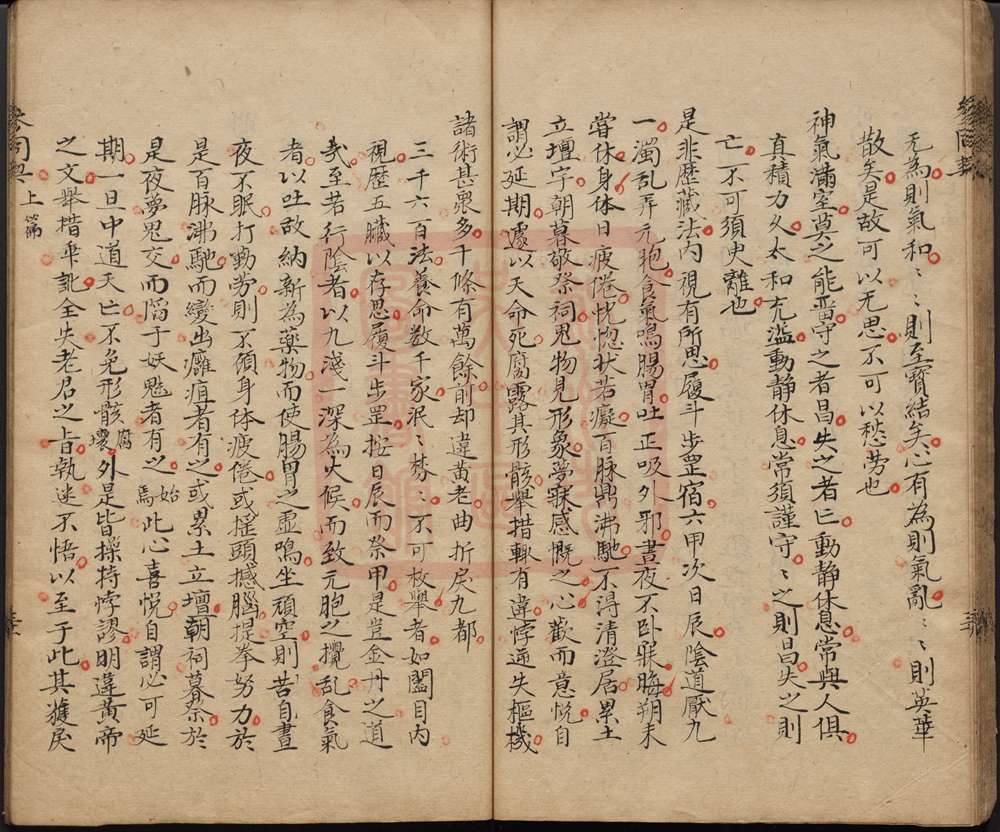 无為則氣和〻則至寳結矣心有為則氣亂〻則英華
散矣是故可以无思不可以愁勞也
神氣滿室莫之能畱守之者昌失之者亡動靜休息常與人俱
直積力久太和充溢動靜休息常須謹守〻之則昌失之則
亡不可須臾離也
是非歷藏法内視有所思履斗步罡宿六甲次日辰陰道厭九
一濁乱弄元胞食氣鳴腸胃吐正吸外邪晝夜不卧寐晦朔未
嘗休身体日疲倦恍惚狀若癡百脉鼎沸馳不淂清澄居累土
立壇宇朝暮敬祭祠鬼物見形象夢寐感慨之心歡而意悅自
謂必延期遽以夭命死腐露其形骸舉措輒有違悖逆失樞機
諸術甚衆多千條有萬餘前却違黄老曲折戾九都
三千六百法養命数千家泯〻棼〻不可枚舉者如閉目内
視歷五臟以存思履斗步罡按日辰而祭甲是豈金丹之道
㢤至若行陰者以九淺一深為火候而致元胞之攪乱食氣
者以吐故納新為藥物而使腸胃之虛鳴坐頑空則苦自晝
夜不眠打動勞則不傾身体疲倦或摇頭撼腦提拳努力於
是百脉沸馳而變出癰疽者有之或累土立壇朝祠暮祭於
是夜夢鬼交而陷于妖魅者有之始焉此心喜悅自謂必可延
期一旦中道夭亡不免形骸腐壞外是皆操持悖謬明違黄帝
之文舉措乖訛全失老君之旨執迷不悟以至于此其獲戾
參同契
上篇